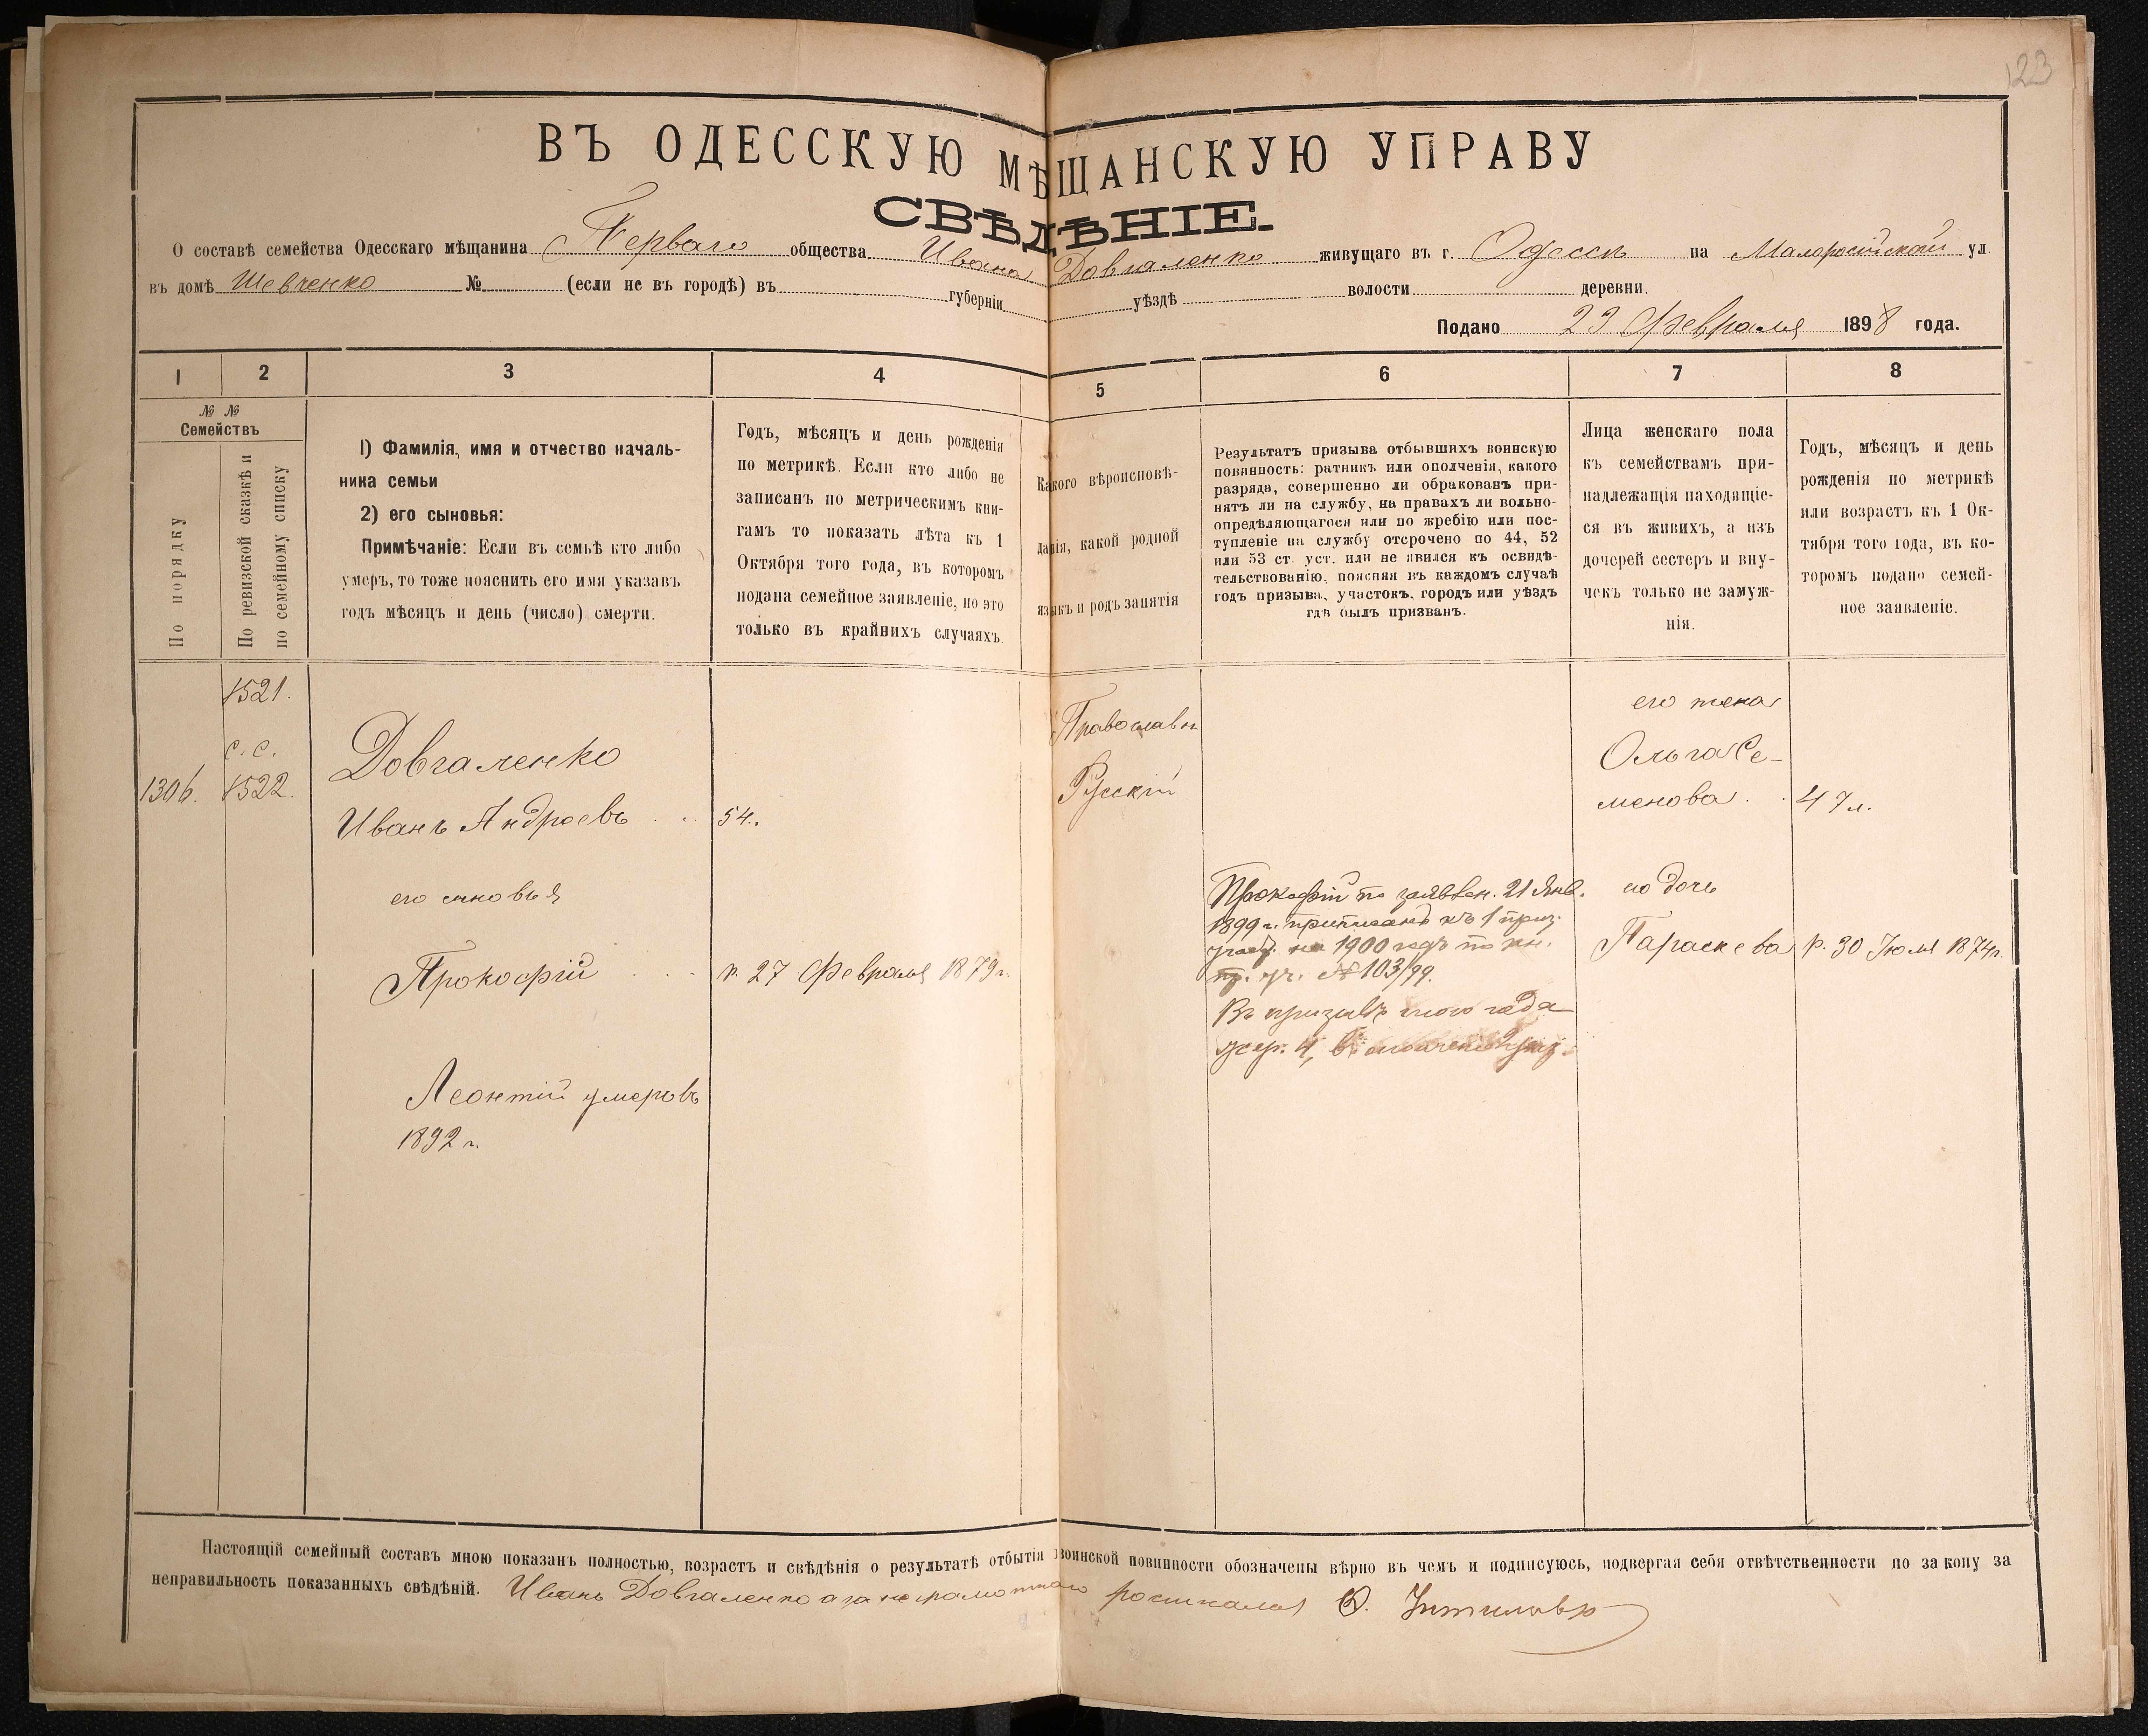 123
ВЪ ОДЕССКУЮ МѢЩАНСКУЮ УПРАВУ
СВѢДѢНІЕ.
О составѣ семейства Одесскаго мѣщанина Перваго общества Ивана Довгаленко живущаго въ г. Одессѣ на Маларосійской ул.
въ домѣ Шевченко № (если не въ городѣ) въ губерніи уѣздѣ волости деревни.
Подано 23 Февраля 1898 года.
1 2 3 4 5 6 7 8
№ №
Семействъ
По порядку
По ревизской сказкѣ и
по семейному списку
1) Фамилія, имя и отчество началь-
ника семьи
2) его сыновья:
Примѣчаніе: Если въ семьѣ кто либо
умеръ, то тоже пояснить его имя указавъ
годъ мѣсяцъ и день (число) смерти.
Годъ, мѣсяцъ и день рожденія
по метрикѣ. Если кто либо не
записанъ по метрическимъ кни-
гамъ то показать лѣта къ 1
Октября того года, въ которомъ
подана семейное заявленіе, но это
только въ крайнихъ случаяхъ.
Какого вѣроисповѣ-
данія, какой родной
языкъ и родъ занятія
Результатъ призыва отбывшихъ воинскую
повинность: ратникъ или ополченія, какого
разряда, совершенно ли обракованъ при-
нятъ ли на службу, на правахъ ли вольно-
опредѣляющагося или по жребію или пос-
тупленіе на службу отсрочено по 44, 52
или 53 ст. уст. или не явился къ освидѣ-
тельствованію, поясняя въ каждомъ случаѣ
годъ призыва, участокъ, городъ или уѣздъ
гдѣ былъ призванъ.
Лица женскаго пола
къ семействамъ при-
надлежащія находящіе-
ся въ живихъ, а изъ
дочерей сестеръ и вну-
чекъ только не замуж-
нія.
Годъ, мѣсяцъ и день
рожденія по метрикѣ
или возрастъ къ 1 Ок-
тября того года, въ ко-
торомъ подано семей-
ное заявленіе.
1521.
с. с.
1306. 1522.
Довгаленко
Иванъ Андреевъ 54.
его сыновья
Прокофій р. 27 Февраля 1879 г.
Леонтій умеръ въ
1892 г.
Православн
Русскій
Прокофій по заявлен. 21 Янв.
1899 г. приписанъ къ 1 приз.
участ. на 1900 годъ по кн.
пр. уч. №103/99.
Въ призывъ сего года
жер. 4,
его жена
Ольга Се-
менова. 47 л.
его дочь
Параскева р. 30 Іюля 1874 г.
Настоящій семейный составъ мною показанъ полностью, возрастъ и свѣдѣнія о результатѣ отбытія воинской повинности обозначены вѣрно въ чемъ и подписуюсь, подвергая себя отвѣтственности по закону за
неправильность показанныхъ свѣдѣній. Иванъ Довгаленко а за неграмотнаго